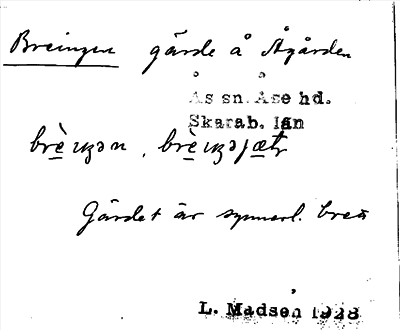 Breingen gärde å Ågården
Ås sn. Åse hd.
Skarab. län
brè̲ɪŋən, brè̲ɪŋəjæ̲tr
Gärdet är synnerl. bre
L. Madsén 1928